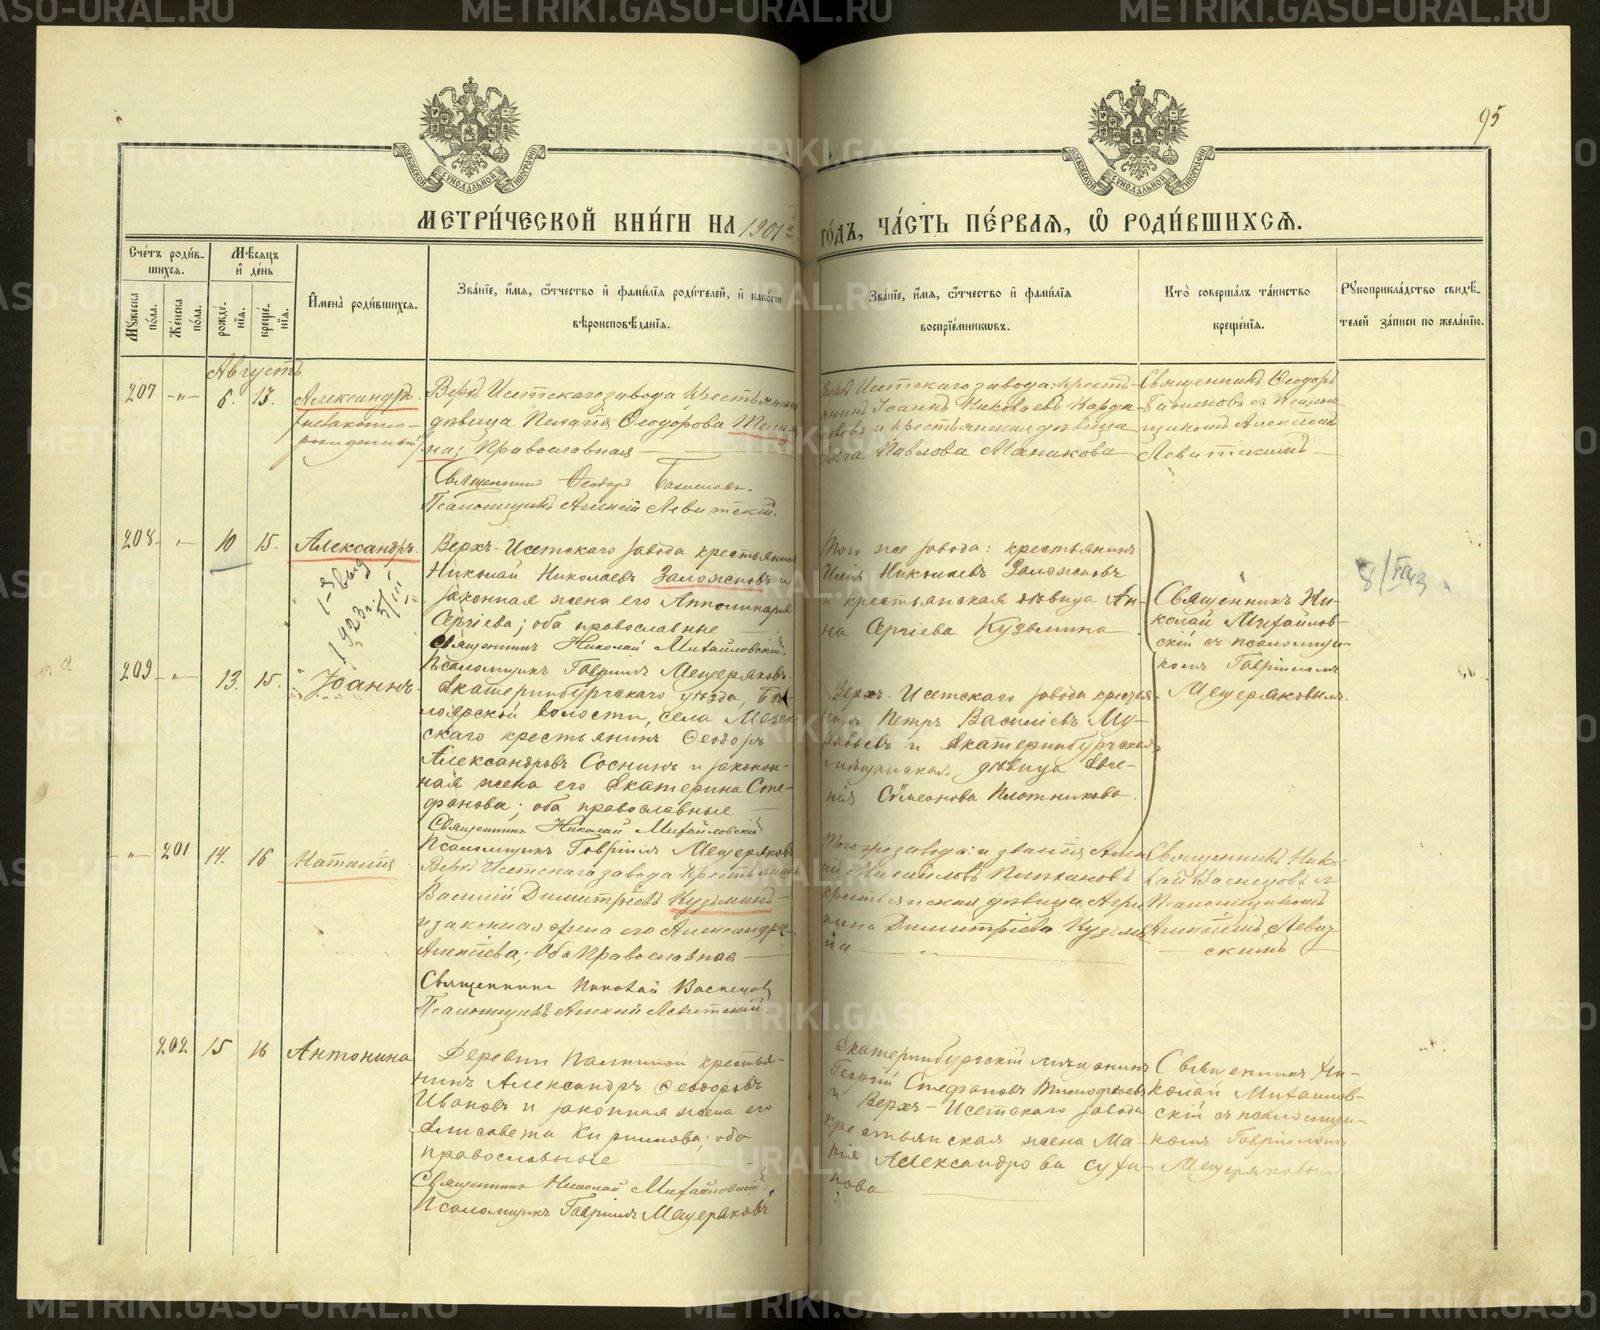 95
МЕТРИ́ЧЕСКОЙ КНИ́ГИ НА 1901 ГО́ДЪ, ЧА́СТЬ ПЕ́РВАЯ, Ѡ РОДИ́ВШИХСЯ.
Сче́тъ роди́в-
шихся.
Му́жеска по́ла.
Же́нска по́ла.
Мѣ́сяцъ
и҆ де́нь
рожде́-
нїя.
креще́-
нїя.
И҆мена̀ роди́вшихся.
Зва́нїе, и҆́мя, ѻ҆́тчество и҆ фами́лїя роди́телей, и҆ како́гѡ
вѣроисповѣ́данїя.
Зва́нїе, и҆́мя, ѻ҆́тчество и҆ фами́лїя
воспрїе́мникѡвъ.
Кто̀ соверша́лъ та́инство
креще́нїя.
Рꙋкоприкла́дство свидѣ́-
телей за́писи по жела́нїю.
Августъ
207 -„- 6. 13.
Александръ
(незаконно-
рожденный)
Верхъ Исетскаго завода крестьянская
дѣвица Пелагія Ѳеодорова
на; Православная
Священникъ Ѳеодоръ
Псаломщикъ Алексій Левитскій.
Верхъ Исетскаго завода: крестья-
нинъ Іоаннъ Николаевъ
и крестьянская дѣвица
Ольга Павлова Маникова
Священникъ Ѳеодоръ
съ Псалом-
щикомъ Алексіемъ
Левитскимъ
208 - „ - 10 15.
Александръ.
Верхъ-Исетскаго завода крестьянинъ
Николай Николаевъ Заложновъ и
законная жена его Апполинарія
Сргіева; оба православные
Священникъ Николай Михайловскій.
Псаломщикъ Гавріилъ Мещеряковъ.
Того же завода: крестьянинъ
Илія Николаевъ Заложновъ
и крестьянская дѣвица Ан-
на Сргіева Кузьмина
Священникъ Ни-
колай Михайлов-
скій съ псаломщи-
комъ Гавріиломъ
Мещеряковымъ.
209 - „ - 13. 15.
Іоаннъ
Екатеринбургскаго уѣзда, Бѣ-
лоярской волости, села Мезен-
скаго крестьянинъ Ѳеодоръ
Александровъ Соснинъ и закон-
ная жена его Екатерина Сте-
фанова; оба православные
Священникъ Николай Михайловскій
Псаломщикъ Гавріилъ Мещеряковъ
Верхъ-Исетскаго завода крестья-
нинъ Петръ Василіевъ Му-
равьевъ и Екатеринбургская
мѣщанская дѣвица Евге-
нія Сумеонова Плотникова.
- „ - 201 14. 16
Наталія
Верхъ Исетскаго завода крестьянинъ
Василій Димитріевъ Кузьминъ
и законная жена его Александра
Алексіева; Оба Православные
Священникъ Николай Васнецовъ
Псаломщикъ Алексій Левитскій.
Того же завода: и званія Алек-
сѣй Михаиловъ Плехановъ
крестьянская дѣвица Агрип-
пина Димитріева Кузьми-
на
Священникъ Нико-
лай Васнецовъ съ
Псаломщикомъ
Алексіемъ Левит-
скимъ
202 15 16
Антонина
Деревни Палкиной крестья-
нинъ Александръ Ѳеодоровъ
Ивановъ и законная жена его
Елисавета Кириллова; оба
православные
Священникъ Николай Михайловскій.
Псаломщикъ Гавріилъ Мещеряковъ
Екатеринбургскій мѣщанинъ
Георгій Стефановъ Тимофеевъ
и Верхъ-Исетскаго завода
крестьянская жена Ма-
рія Александрова
нова
Священникъ Ни-
колай Михайлов-
скій съ псаломщи-
комъ Гавріиломъ
Мещеряковымъ
METRIKI.GASO-URAL.RU